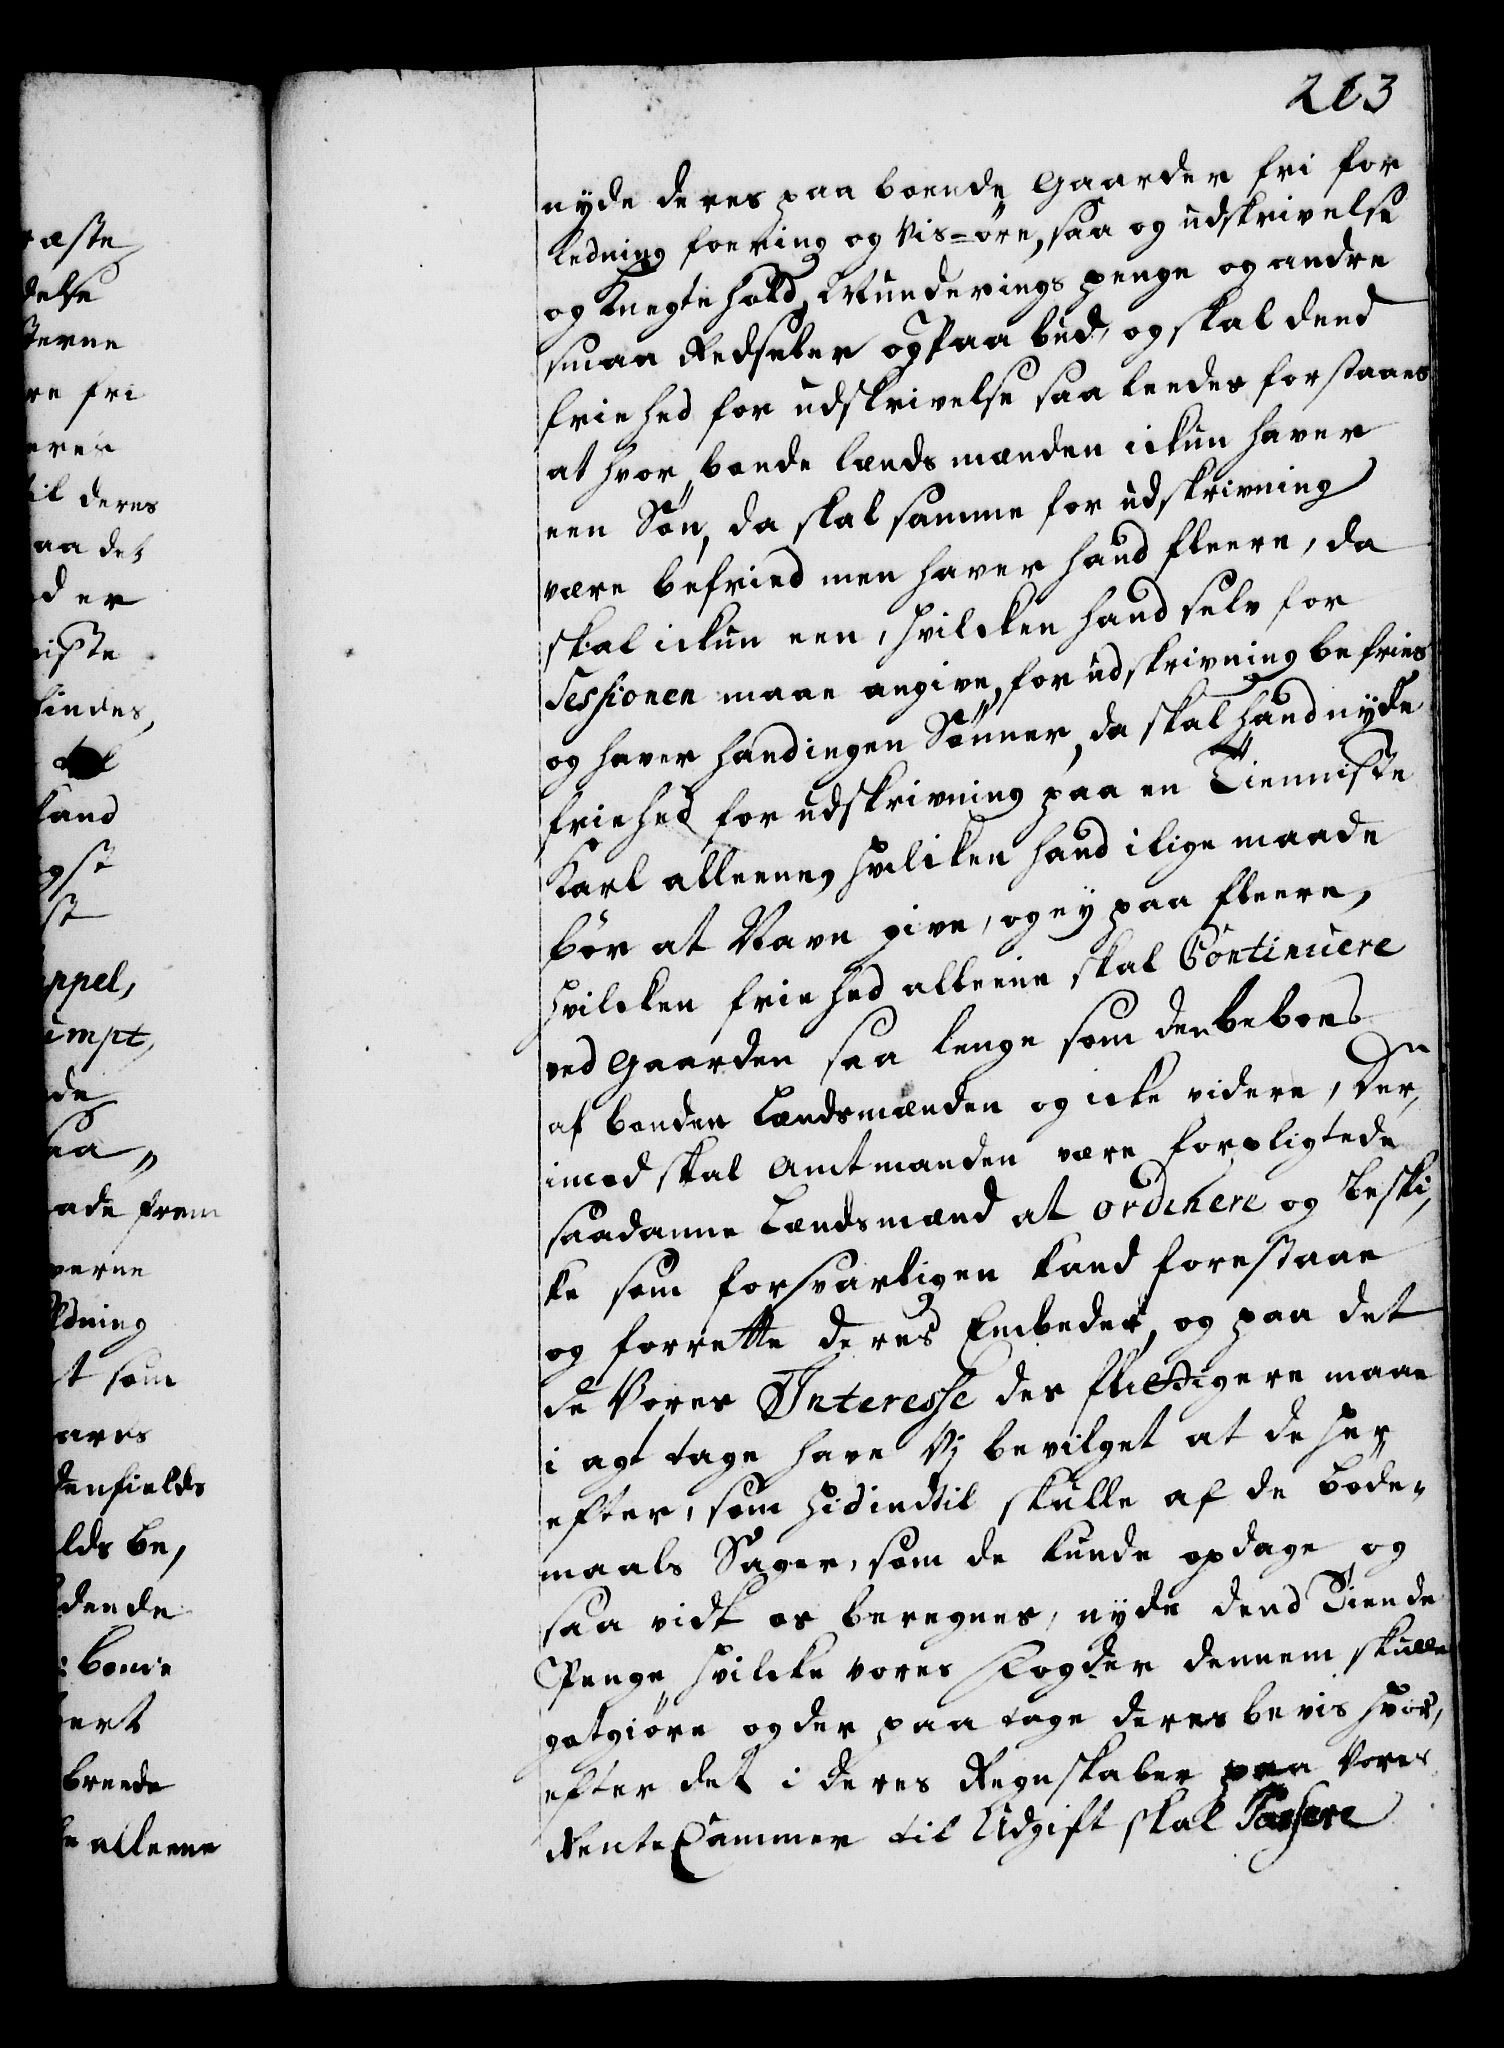 213
nyde deres paa boende Gaarder fri for
Ledning foering og Vis-øre, saa og udskrivelse
og Knegtehold, Munderings penge og andre
smaa Redseler og Paa bud, og skal dend
friehed for udskrivelse saa leedes forstaaes
at hvor bonde lændsmanden ickun haver
een Søn, da skal samme for udskrivning
være befried men haver hand fleere, da
skal ickun een, hvilcken hand selv for
Sessionen maae angive, for udskrivning befries
og haver hand ingen Sønner, da skal hand nyde
friehed for udskrivning paa en Tienniste
Karl alleene, hvilcken hand i lige maade
bør at Navn give, og ey paa fleere,
hvilcken friehed alleene skal Continuere
ved Gaarden saa lenge som den beboes
af bonden Lændsmanden og icke videre, Der,
imod skal Amtmanden være forpligtede
saadanne Lændsmænd at ordinere og beski,
ke som forsvarligen kand forestaae
og forrette deres Embeder, og paa det
de Vores Interesse des flittigere maae
i agt tage have Vj bevilget at de her
efter, som hid indtil skulle af de bøde-
maals Sager, som de kunde opdage og
saa vidt os beregnes, nyde dend Tiende
Penge, hvilcke vores Fogder dennem skulle
gotgiøre og der paa tage deres bevis hvor,
efter det i deres Regnskaber paa Vores
Rente Cammer til Udgift skal Passere